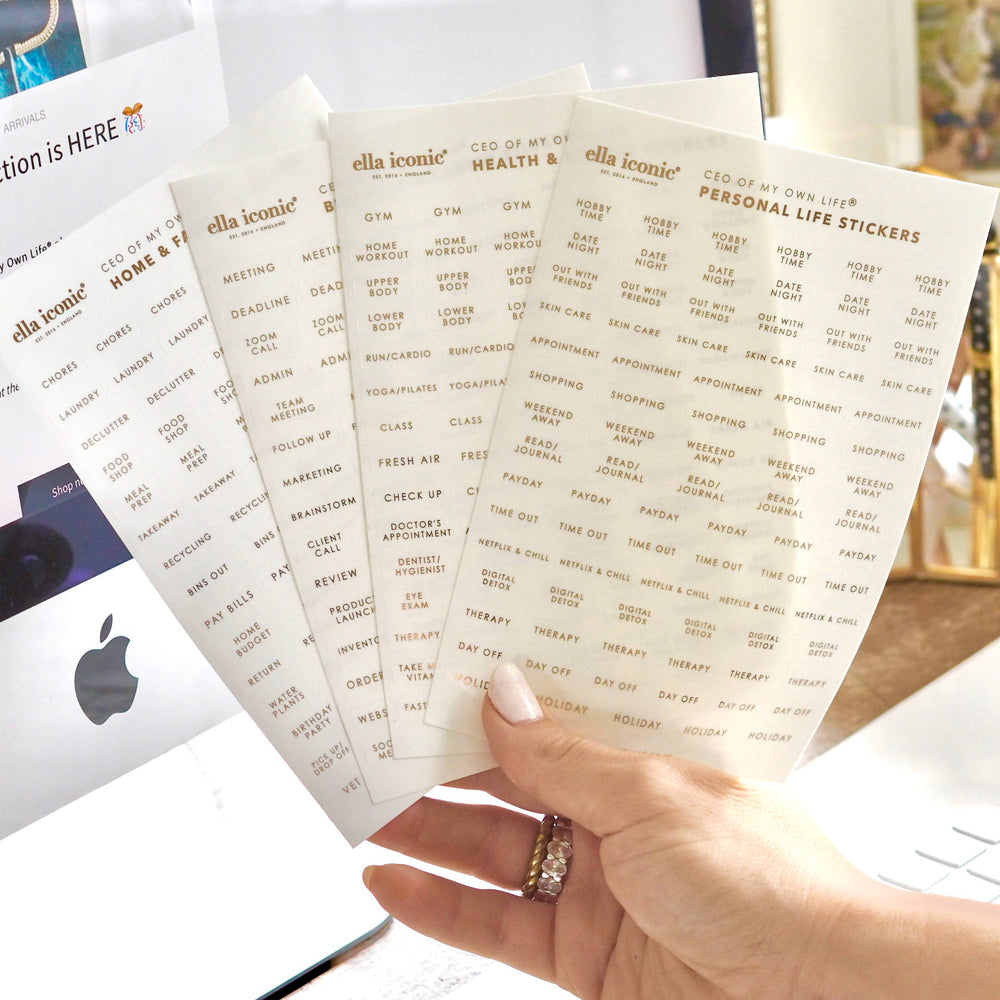 ARRIVALS
ction is HERE
y Own Life®
at the
Shop n
ella iconic®
EST. 2016 • ENGLAND
CEO OF MY OW
HOME & FA
CHORES CHORES CHORES
LAUNDRY LAUNDRY LAUNDRY
DECLUTTER DECLUTTER
FOOD SHOP FOOD SHOP
MEAL PREP MEAL PREP
TAKEAWAY TAKEAWAY
RECYCLING RECYCLIN
BINS OUT BINS
PAY BILLS PAY
HOME BUDGET
RETURN RE
WATER PLANTS
BIRTHDAY PARTY
PICK UP/ DROP OFF
VET
ella iconic®
EST. 2016 • ENGLAND
CE
B
MEETING MEETIN
DEADLINE DEAD
ZOOM CALL ZOOM CALL
ADMIN ADM
TEAM MEETING
FOLLOW UP F
MARKETING
BRAINSTORM
CLIENT CALL
REVIEW
PRODUC LAUNCH
INVENTO
ORDER
WEBS
SOC ME
ella iconic®
EST. 2016 • ENGLAND
CEO OF MY O
HEALTH &
GYM GYM GYM
HOME WORKOUT HOME WORKOUT HOME WORKOU
UPPER BODY UPPER BODY UPPE BODY
LOWER BODY LOWER BODY LOW BO
RUN/CARDIO RUN/CARDIO
YOGA/PILATES YOGA/PILA
CLASS CLASS
FRESH AIR FRES
CHECK UP C
DOCTOR'S APPOINTMENT
DENTIST/ HYGIENIST
EYE EXAM
THERAPY
TAKE M VITAM
FAST
ella iconic®
EST. 2016 • ENGLAND
CEO OF MY OWN LIFE®
PERSONAL LIFE STICKERS
HOBBY TIME HOBBY TIME HOBBY TIME HOBBY TIME HOBBY TIME HOBBY TIME
DATE NIGHT DATE NIGHT DATE NIGHT DATE NIGHT DATE NIGHT DATE NIGHT
OUT WITH FRIENDS OUT WITH FRIENDS OUT WITH FRIENDS OUT WITH FRIENDS OUT WITH FRIENDS OUT WITH FRIENDS
SKIN CARE SKIN CARE SKIN CARE SKIN CARE SKIN CARE SKIN CARE
APPOINTMENT APPOINTMENT APPOINTMENT APPOINTMENT APPOINTMENT
SHOPPING SHOPPING SHOPPING SHOPPING SHOPPING
WEEKEND AWAY WEEKEND AWAY WEEKEND AWAY WEEKEND AWAY WEEKEND AWAY
READ/ JOURNAL READ/ JOURNAL READ/ JOURNAL READ/ JOURNAL READ/ JOURNAL
PAYDAY PAYDAY PAYDAY PAYDAY PAYDAY PAYDAY
TIME OUT TIME OUT TIME OUT TIME OUT TIME OUT TIME OUT
NETFLIX & CHILL NETFLIX & CHILL NETFLIX & CHILL NETFLIX & CHILL NETFLIX & CHILL
DIGITAL DETOX DIGITAL DETOX DIGITAL DETOX DIGITAL DETOX DIGITAL DETOX DIGITAL DETOX
THERAPY THERAPY THERAPY THERAPY THERAPY THERAPY
DAY OFF DAY OFF DAY OFF DAY OFF DAY OFF DAY OFF
HOLID HOLIDAY HOLIDAY HOLIDAY HOLIDAY